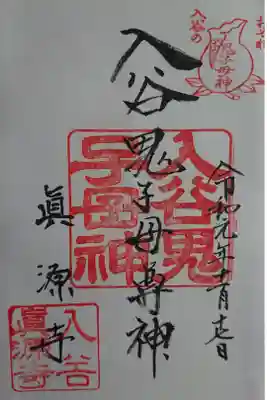 入谷の
鬼子母神
令和元年
入谷
鬼子母尊神
入谷鬼
子母神
眞源寺
入谷
眞源寺